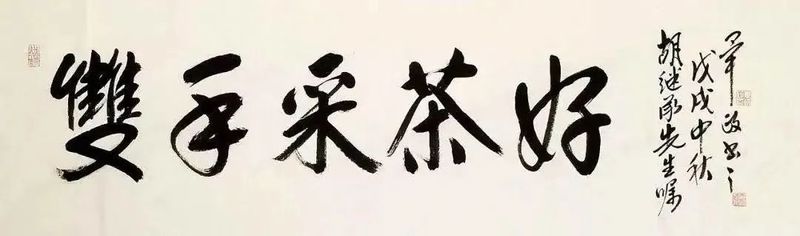 雙手采茶好
胡继承先生嘱
戊戌中秋
政书之